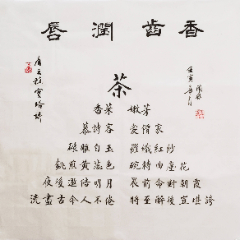 唇潤齒香
茶
香葉 嫩芽
慕詩客 愛僧家
碾雕白玉 羅織紅紗
銚煎黃蕊色 碗轉曲塵花
夜後邀陪明月 晨前命對朝霞
洗盡古今人不倦 將至醉後豈堪誇
唐元稹寶塔詩